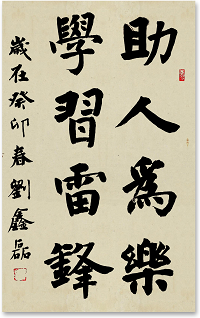 助人為樂
學習雷鋒
歲在癸卯春劉鑫磊